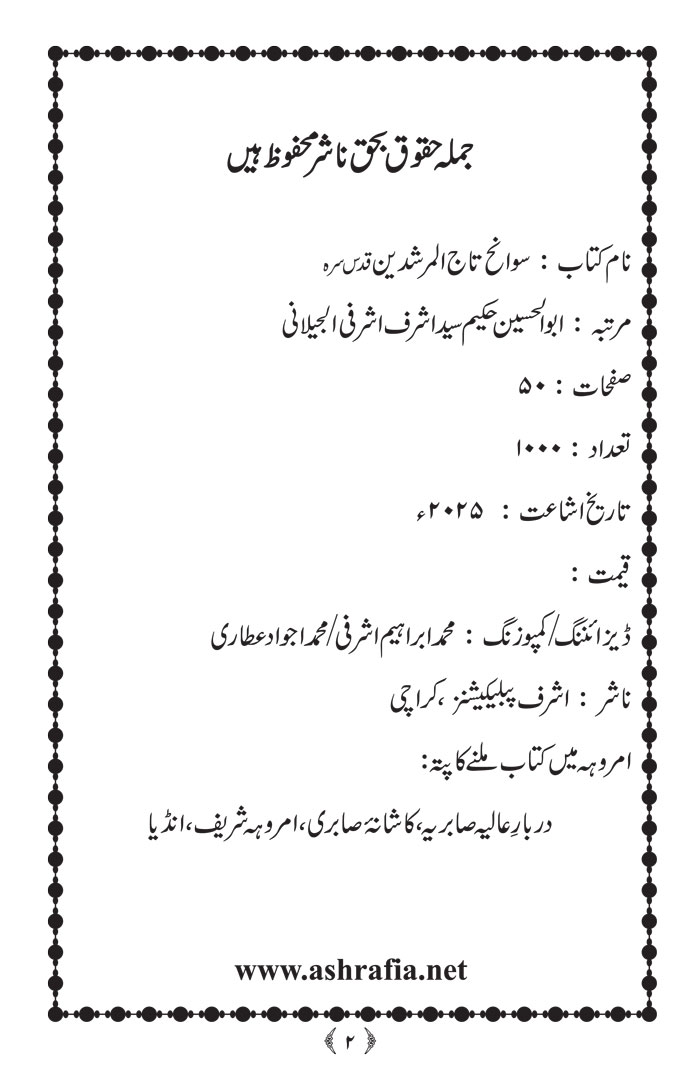 جملہ حقوق بحق ناشر محفوظ ہیں
نام کتاب : سوانح تاج المرشدین قدس سرہ
مرتبہ : ابوالحسین حکیم سید اشرف اشرفی الجیلانی
صفحات : ۵۰
تعداد : ۱۰۰۰
تاریخ اشاعت : ۲۰۲۵ء
قیمت :
ڈیزائننگ/کمپوزنگ : محمد ابراہیم اشرفی/محمد اجواد عطاری
ناشر : اشرف پبلیکیشنز ،کراچی
امروہہ میں کتاب ملنے کا پتہ:
دربارِ عالیہ صابریہ، کاشانۂ صابری، امروہہ شریف، انڈیا
www.ashrafia.net
﴿ ۲ ﴾